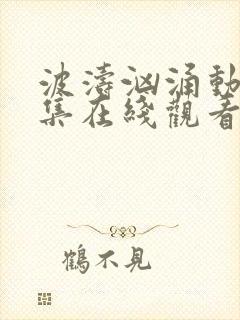 波濤洶涌動
集在綫觀看
鶴不見